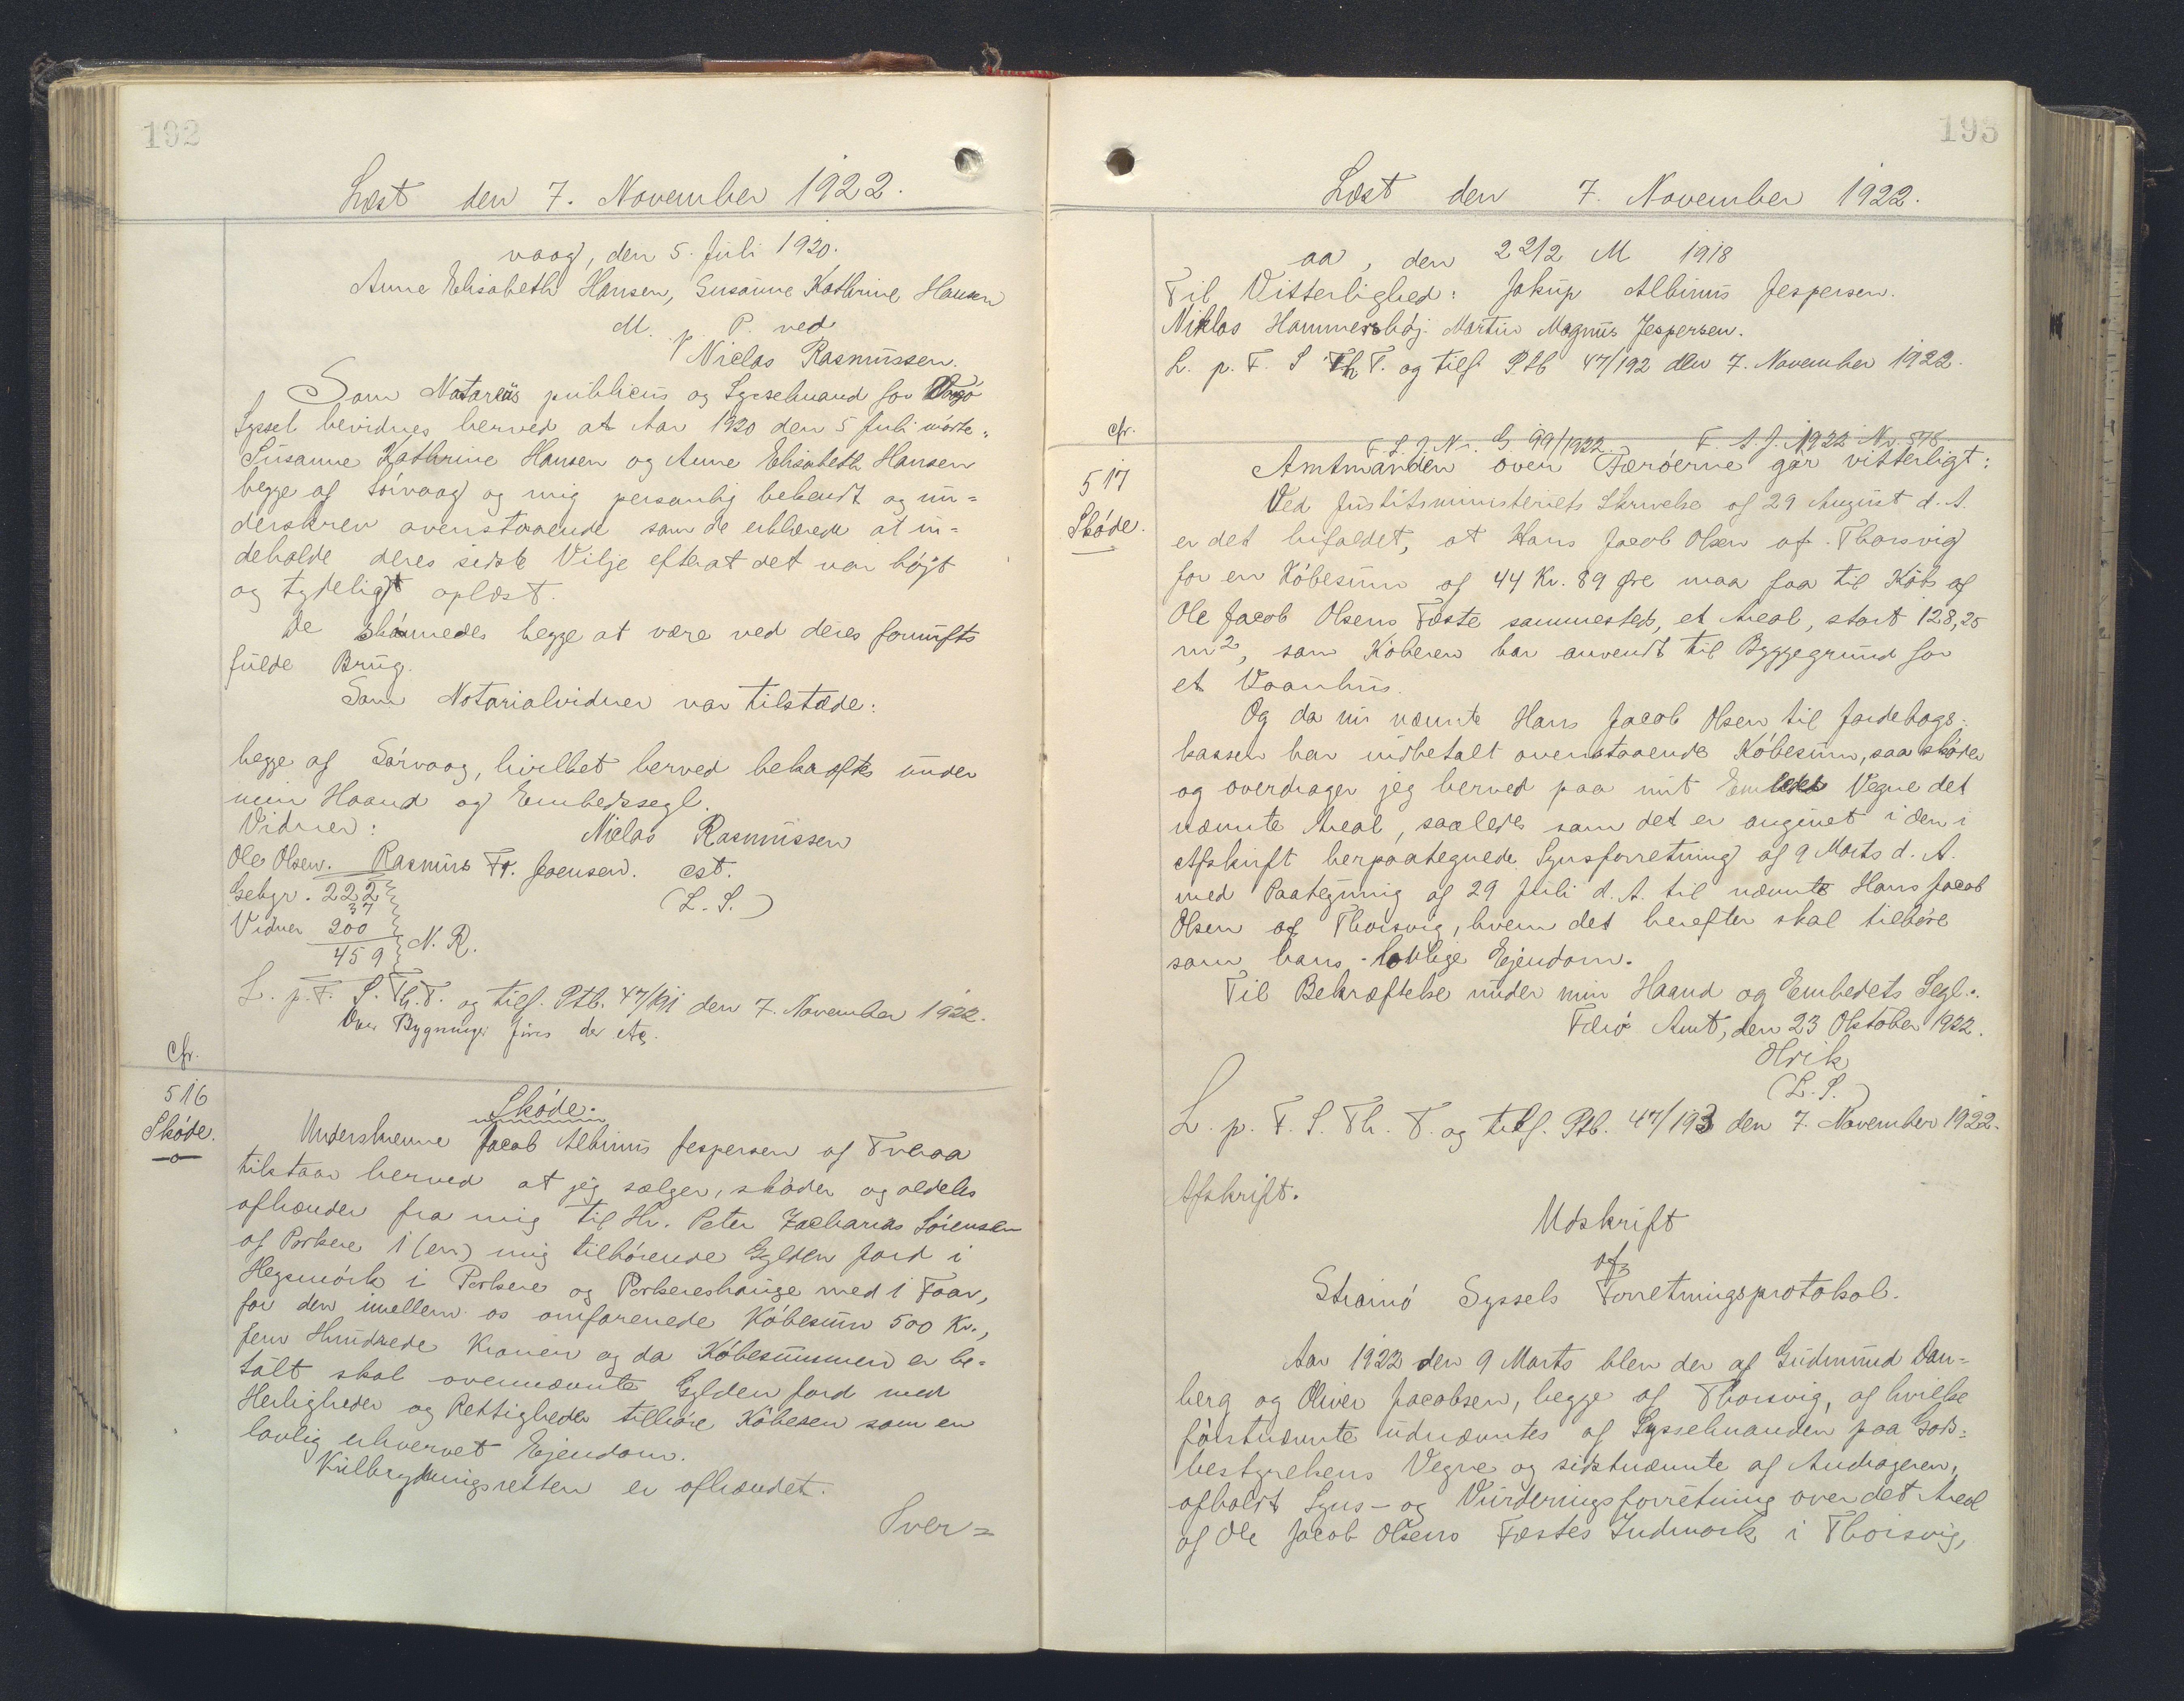 192
Læst den 7. November 1922.
vaag, den 5. Juli 1920.
Anne Elisabeth Hansen, Susanne Kathrine Hansen
M. p. P. ved
Niclas Rasmussen.
Som Notarius publicus og Sysselmand for Vaagø
Syssel bevidnes herved at Aar 1920 den 5 Juli mødte
Susanne Kathrine Hansen og Anne Elisabeth Hansen
begge af Sørvaag og mig personlig bekendt og un=
derskrev ovenstaaende som de erklærede at in=
deholde deres sidste Vilje efterat det var højt
og tydeligt oplæst.
De skønnedes begge at være ved deres fornufts
fulde Brug.
Som Notarialvidner var tilstede:
begge af Sørvaag, hvilket herved bekræftes under
min Haand og Embedssegl.
Vidner: Niclas Rasmussen
Ole Olsen. Rasmus Fr. Joensen. cst.
Gebyr. 222 (L. S.)
37
Vidner 200
459 N. R.
L. p. F. S. Th. T. og tilf. Ptb. 47/191 den 7. November 1922.
Over Bygninger føres der
cfr.
516
Skøde.
Skøde.
Underskrevne Jacob Albinus Jespersen af Tvøraa
tilstaar herved at jeg sælger, skøder og aldeles
afhænder fra mig til Hr. Peter Zacharias Sørensen
af Porkere 1 (en) mig tilhørende Gylden Jord i
Hegsmørk i Porkere og Porkereshauge med 1 Faar,
for den imellem os omforenede Købesum 500 Kr.,
fem Hundrede Kroner og da Købesummen er be=
talt skal ovennævnte Gylden Jord med
Herligheder og Rettigheder tilhøre Køberen som en
lovlig erhvervet Ejendom.
Kulbrydningsretten er afhændet.
Tver=
193
Læst den 7. November 1922.
aa, den 22/2 M 1918
Til Vitterlighed: Jakup Albinus Jespersen.
Niklas Hammershøj. Martin Magnus Jespersen.
L. p. F. S Th T. og tilf Ptb 47/192 den 7. November 1922.
cfr.
517
Skøde.
F. S. J. Nr. G. 99/1922. F. A. J. 1922 Nr. 578.
Amtmanden over Færøerne gør vitterligt:
Ved Justitsministeriets Skrivelse af 29 August d. A.
er det bifaldet, at Hans Jacob Olsen af Thorsvig
for en Købesum af 44 Kr. 89 Øre maa faa til Køb af
Ole Jacob Olsens Fæste sammesteds, et Areal, stort 128,25
m², som Køberen har anvendt til Byggegrund for
et Vaanhus.
Og da nu nævnte Hans Jacob Olsen til Jordebogs-
kassen har indbetalt ovenstaaende Købesum, saa skøder
og overdrager jeg herved paa mit Embeds Vegne det
nævnte Areal, saaledes som det er angivet i den i
Afskrift herpaategnede Synsforretning af 9 Marts d. A.
med Paategning af 29 Juli d. A. til nævnte Hans Jacob
Olsen af Thorsvig, hvem det herefter skal tilhøre
som hans lovlige Ejendom.
Til Bekræftelse under min Haand og Embedets Segl.
Færø Amt, den 23 Oktober 1922.
Olrik
(L. S.)
L. p. F. S. Th. T. og tilf. Ptb. 47/193 den 7. November 1922.
Afskrift.
Udskrift
af
Strømø Syssels Forretningsprotokol.
Aar 1922 den 9 Marts blev der af Gudmund Dan=
berg og Oliver Jacobsen, begge af Thorsvig, af hvilke
førstnævnte udnævntes af Sysselmanden paa Gods=
bestyrelsens Vegne og sidstnævnte af Andrageren,
afholdt Syns- og Vurderingsforretning over det Areal
af Ole Jacob Olsens Fæstes Indmark i Thorsvig,